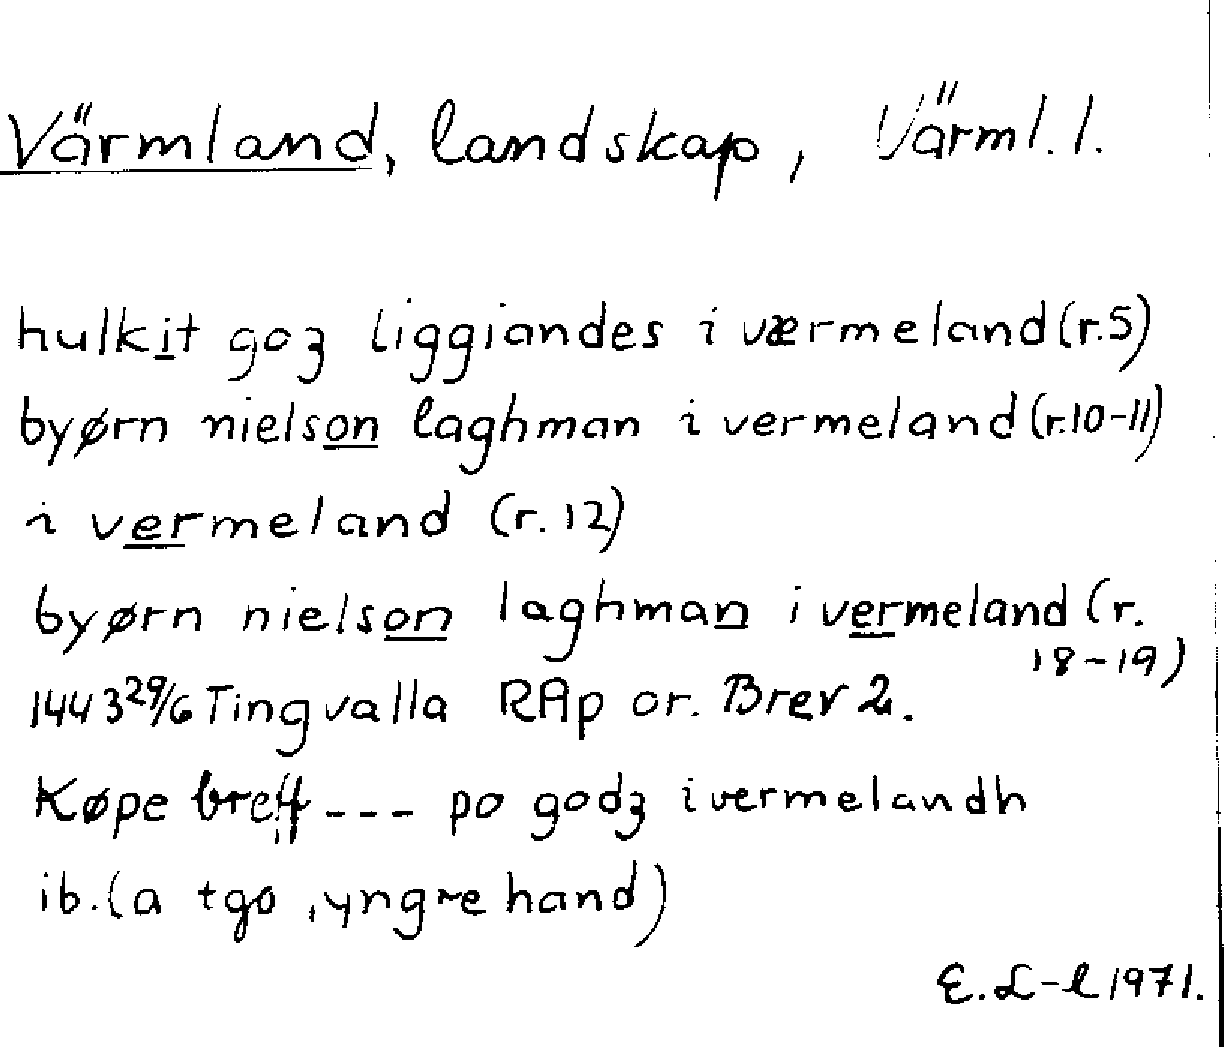 Värmland, landskap, Värml. l.
hulkit goʒ liggiandes i værmeland (r.5)
byørn nielson laghman i vermeland (r.10-11)
i vermeland (r. 12)
byørn nielson laghman i vermeland (r.
18-19)
1443 29/6 Tingvalla RAp or. Brev 2.
Køpe breff --- po godʒ i vermelandh
ib. (a tgo, yngre hand)
E. L-l 1971.